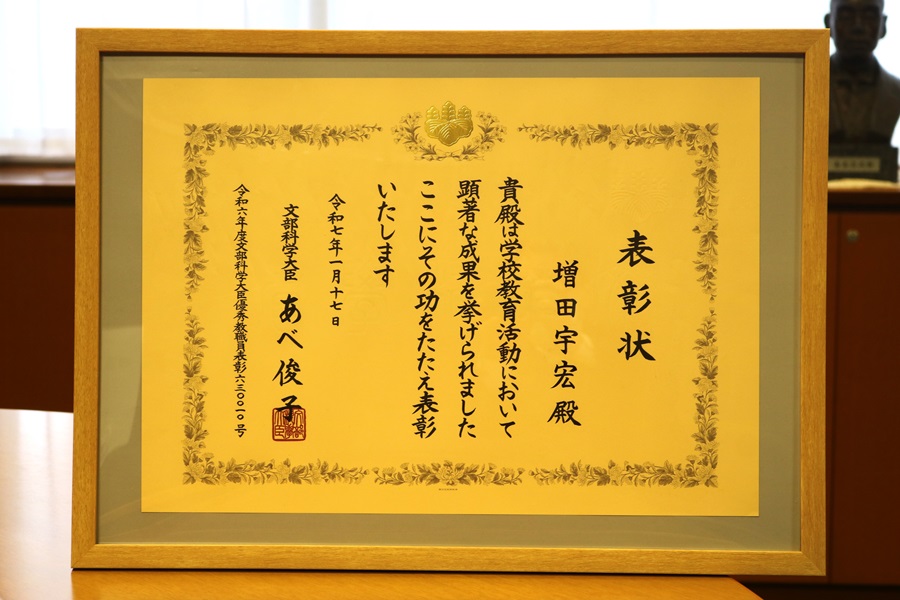 表彰状
増田宇宏殿
貴殿は学校教育活動において
顕著な成果を挙げられました
ここにその功をたたえ表彰
いたします
令和七年一月十七日
文部科学大臣 あべ俊子
令和六年度文部科学大臣優秀教職員表彰六三〇〇一〇号